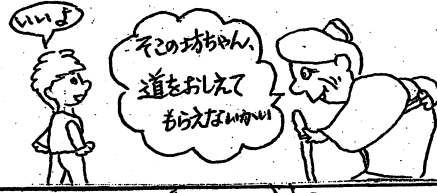 いいよ
そこの坊ちゃん、
道をおしえて
もらえないかい